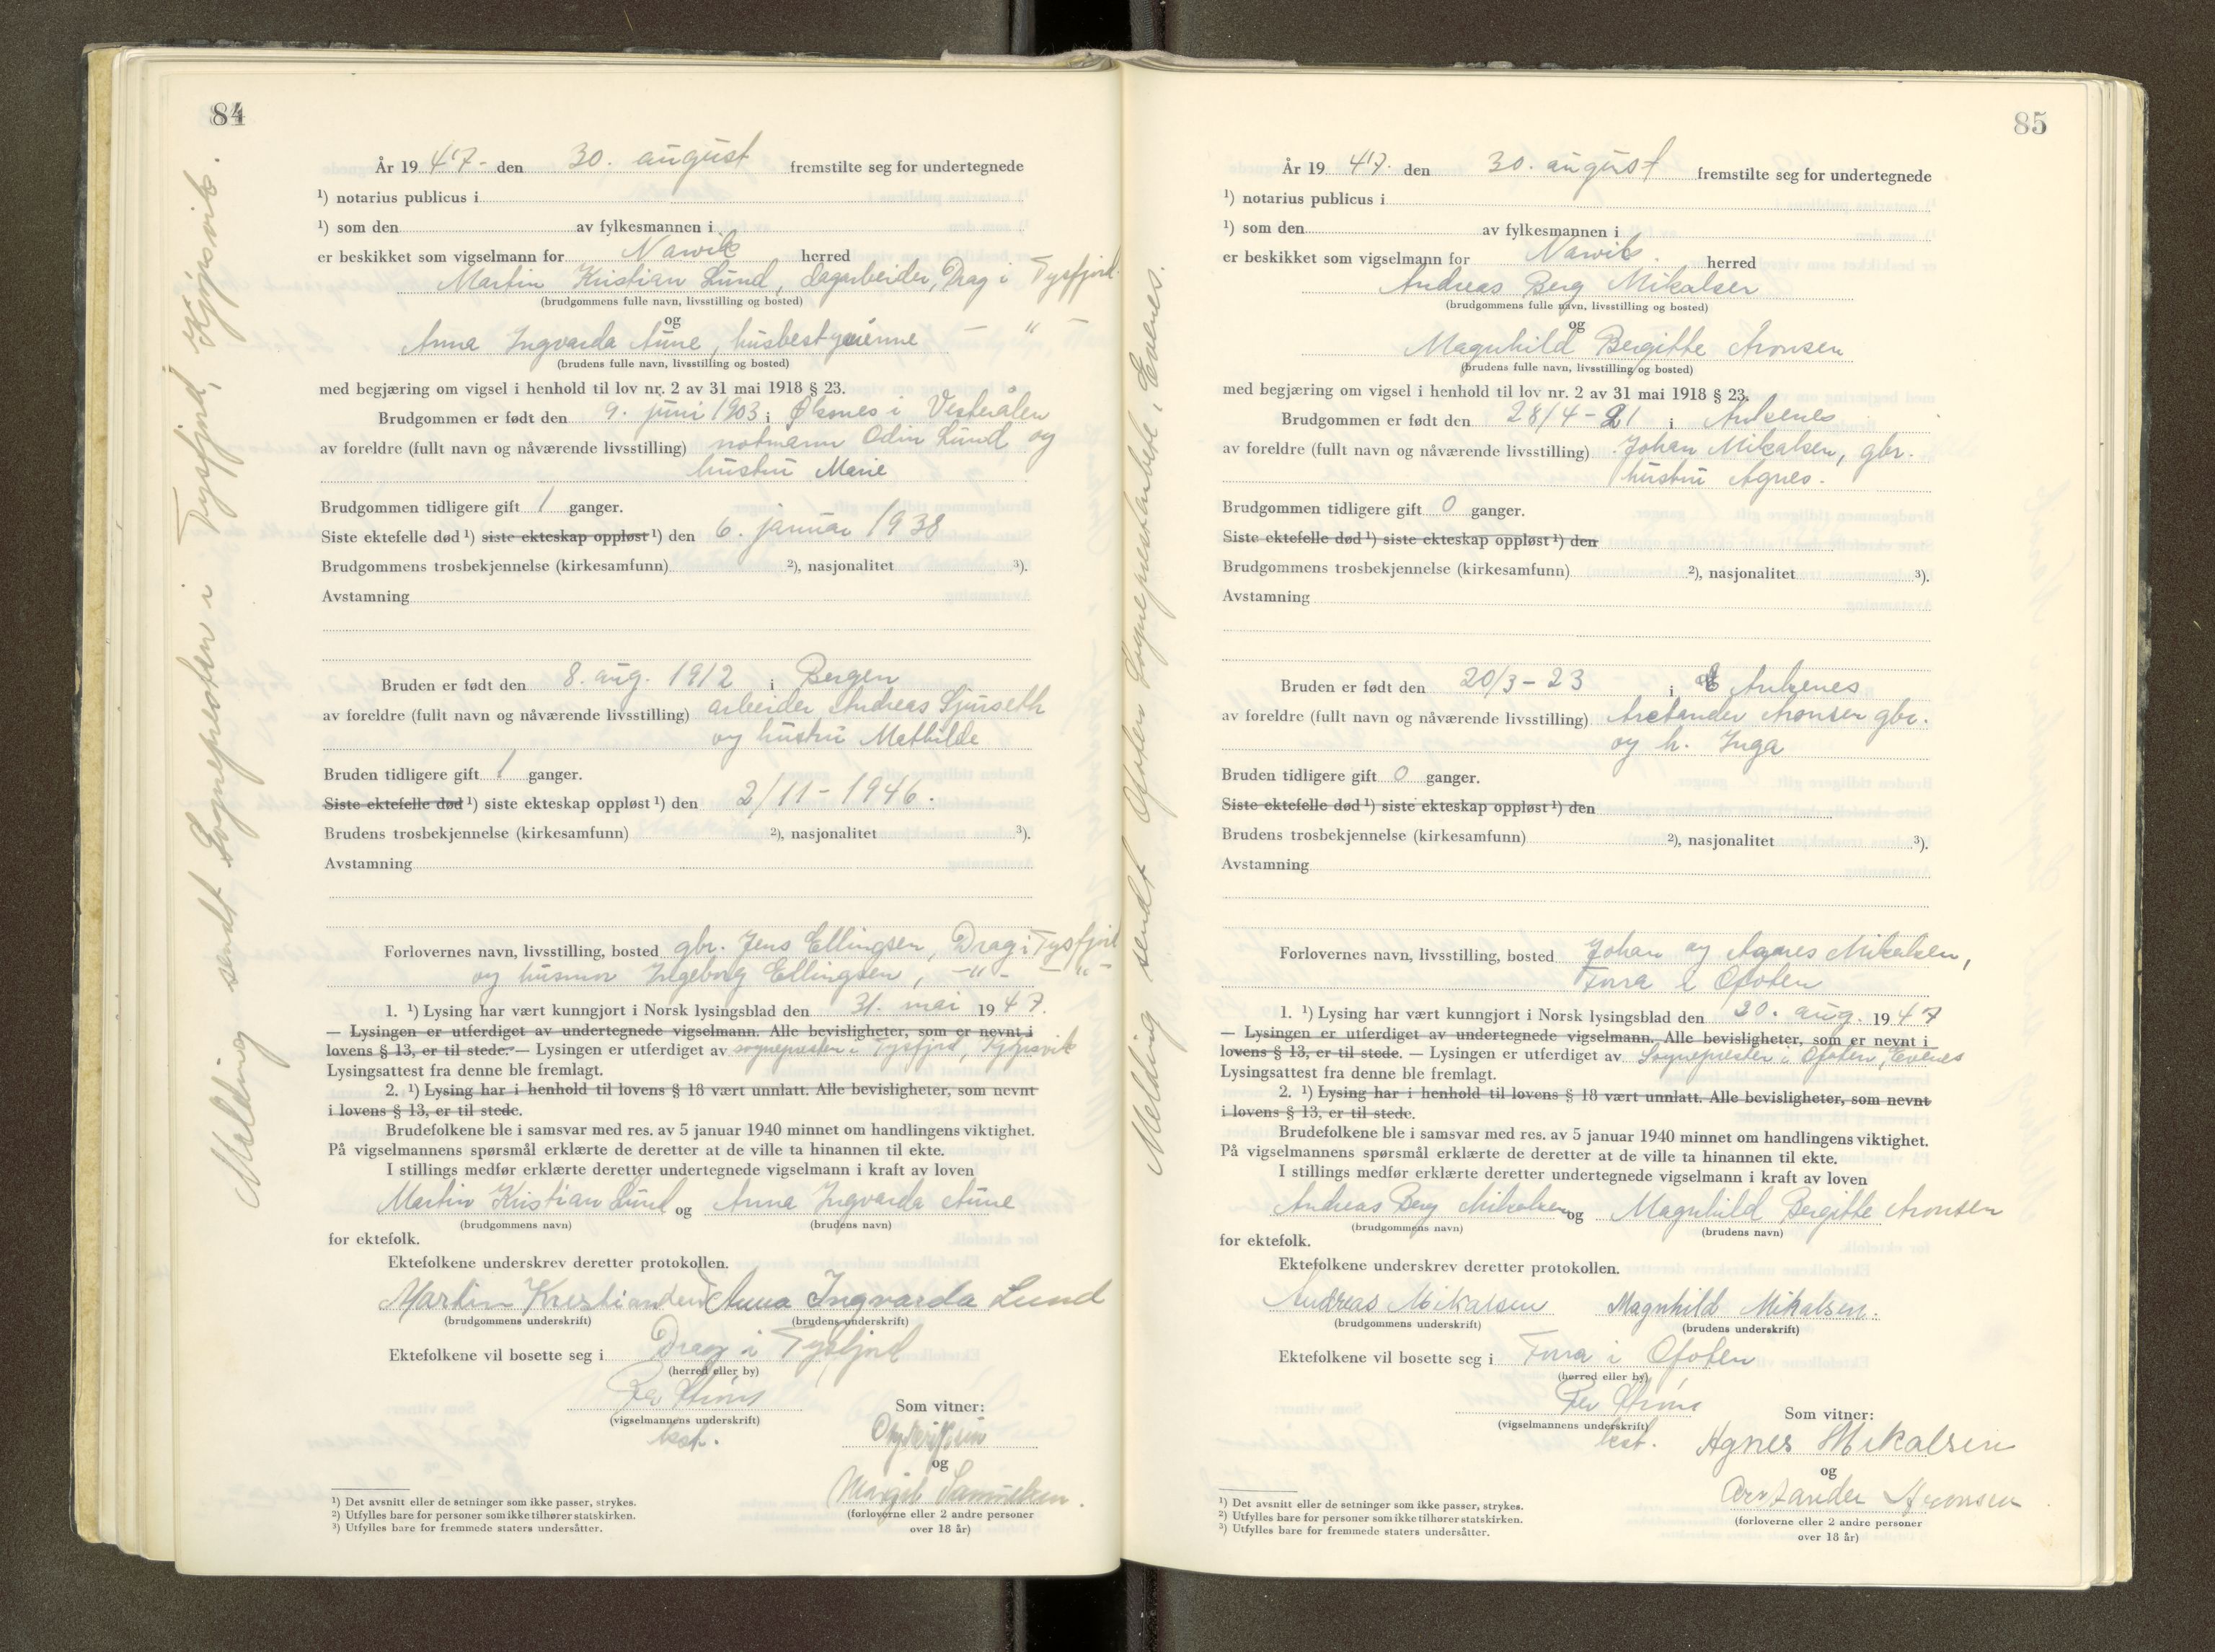 84
År 1947- den 30. august fremstilte seg for undertegnede
¹) notarius publicus i
¹) som den av fylkesmannen i
er beskikket som vigselmann for Narvik herred
Martin Kristian Lund, dagarbeider, Drag i Tysfjord
(brudgommens fulle navn, livsstilling og bosted)
og
Anna Ingvarda Aune, husbestyrerinne — " —
(brudens fulle navn, livsstilling og bosted)
med begjæring om vigsel i henhold til lov nr. 2 av 31 mai 1918 § 23.
Brudgommen er født den 9. juni 1903 i Øksnes i Vesterålen
av foreldre (fullt navn og nåværende livsstilling) notmann Odin Lund og
hustru Marie
Brudgommen tidligere gift 1 ganger.
Siste ektefelle død ¹) siste ekteskap oppløst ¹) den 6. januar 1938
Brudgommens trosbekjennelse (kirkesamfunn) ²), nasjonalitet ³).
Avstamning
Bruden er født den 8. aug. 1912 i Bergen
av foreldre (fullt navn og nåværende livsstilling) arbeider Andreas Sjurseth
og hustru Mathilde
Bruden tidligere gift 1 ganger.
Siste ektefelle død ¹) siste ekteskap oppløst ¹) den 2/11-1946.
Brudens trosbekjennelse (kirkesamfunn) ²), nasjonalitet ³).
Avstamning
Forlovernes navn, livsstilling, bosted gbr. Jens Ellingsen, Drag i Tysfjord
og husmor Ingeborg Ellingsen, -"- -"-
1. ¹) Lysing har vært kunngjort i Norsk lysingsblad den 31. mai 1947.
— Lysingen er utferdiget av undertegnede vigselmann. Alle bevisligheter, som er nevnt i
lovens § 13, er til stede. — Lysingen er utferdiget av sognepresten i Tysfjord, Kjøpsvik
Lysingsattest fra denne ble fremlagt.
2. ¹) Lysing har i henhold til lovens § 18 vært unnlatt. Alle bevisligheter, som nevnt
i lovens § 13, er til stede.
Brudefolkene ble i samsvar med res. av 5 januar 1940 minnet om handlingens viktighet.
På vigselmannens spørsmål erklærte de deretter at de ville ta hinannen til ekte.
I stillings medfør erklærte deretter undertegnede vigselmann i kraft av loven
Martin Kristian Lund og Anna Ingvarda Aune
(brudgommens navn) (brudens navn)
for ektefolk.
Ektefolkene underskrev deretter protokollen.
Martin Kristian Lund Anna Ingvarda Lund
(brudgommens underskrift) (brudens underskrift)
Ektefolkene vil bosette seg i Drag i Tysfjord
(herred eller by)
Som vitner:
(vigselmannens underskrift)
og
Margit Samuelsen.
(forloverne eller 2 andre personer
over 18 år)
¹) Det avsnitt eller de setninger som ikke passer, strykes.
²) Utfylles bare for personer som ikke tilhører statskirken.
³) Utfylles bare for fremmede staters undersåtter.
Melding sendt Sognepresten i Tysfjord, Kjøpsvik.
85
År 1947. den 30. august fremstilte seg for undertegnede
¹) notarius publicus i
¹) som den av fylkesmannen i
er beskikket som vigselmann for Narvik. herred
Andreas Berg Mikalsen
(brudgommens fulle navn, livsstilling og bosted)
og
Magnhild Bergitte Aronsen
(brudens fulle navn, livsstilling og bosted)
med begjæring om vigsel i henhold til lov nr. 2 av 31 mai 1918 § 23.
Brudgommen er født den 28/4-21 i Ankenes
av foreldre (fullt navn og nåværende livsstilling) Johan Mikalsen, gbr.
hustru Agnes.
Brudgommen tidligere gift 0 ganger.
Siste ektefelle død ¹) siste ekteskap oppløst ¹) den
Brudgommens trosbekjennelse (kirkesamfunn) ²), nasjonalitet ³).
Avstamning
Bruden er født den 20/3-23 i Ankenes
av foreldre (fullt navn og nåværende livsstilling) Arctander Aronsen gbr.
og h. Inga
Bruden tidligere gift 0 ganger.
Siste ektefelle død ¹) siste ekteskap oppløst ¹) den
Brudens trosbekjennelse (kirkesamfunn) ²), nasjonalitet ³).
Avstamning
Forlovernes navn, livsstilling, bosted Johan og Agnes Mikalsen,
Forra i Ofoten
1. ¹) Lysing har vært kunngjort i Norsk lysingsblad den 20. aug. 1947
— Lysingen er utferdiget av undertegnede vigselmann. Alle bevisligheter, som er nevnt i
lovens § 13, er til stede. — Lysingen er utferdiget av Sognepresten i Ofoten, Evenes
Lysingsattest fra denne ble fremlagt.
2. ¹) Lysing har i henhold til lovens § 18 vært unnlatt. Alle bevisligheter, som nevnt
i lovens § 13, er til stede.
Brudefolkene ble i samsvar med res. av 5 januar 1940 minnet om handlingens viktighet.
På vigselmannens spørsmål erklærte de deretter at de ville ta hinannen til ekte.
I stillings medfør erklærte deretter undertegnede vigselmann i kraft av loven
Andreas Berg Mikalsen og Magnhild Bergitte Aronsen
(brudgommens navn) (brudens navn)
for ektefolk.
Ektefolkene underskrev deretter protokollen.
Andreas Mikalsen Magnhild Mikalsen.
(brudgommens underskrift) (brudens underskrift)
Ektefolkene vil bosette seg i Forra i Ofoten
(herred eller by)
Som vitner:
(vigselmannens underskrift)
Agnes Mikalsen
og
Arctander Aronsen
(forloverne eller 2 andre personer
over 18 år)
¹) Det avsnitt eller de setninger som ikke passer, strykes.
²) Utfylles bare for personer som ikke tilhører statskirken.
³) Utfylles bare for fremmede staters undersåtter.
Melding sendt Ofoten Sogneprestembete, Evenes.